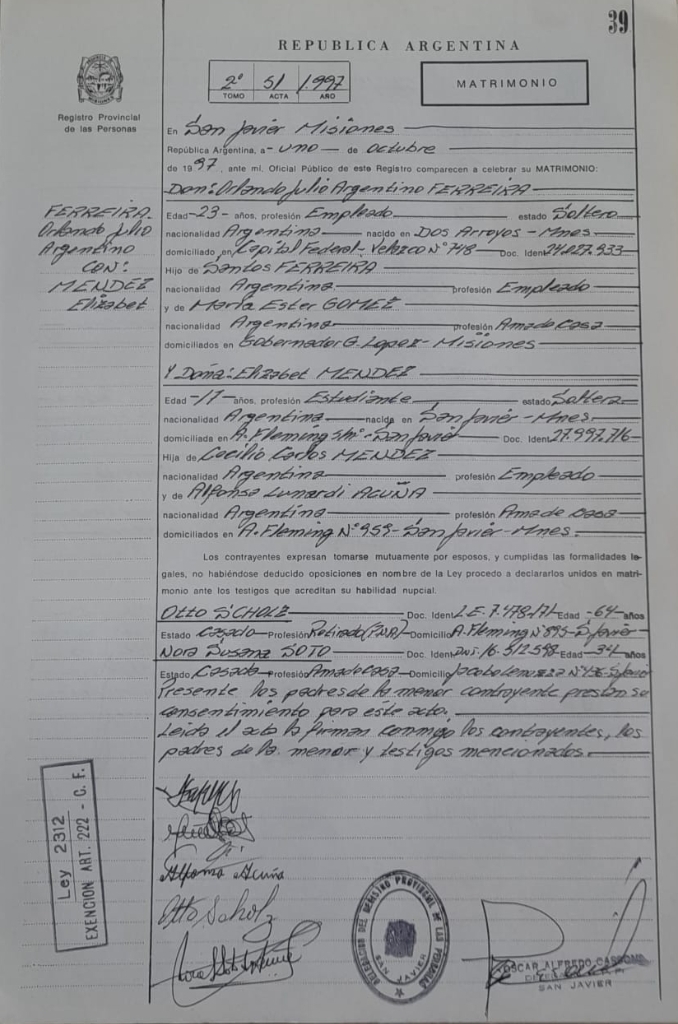 39
REPUBLICA ARGENTINA
2º 51 1.997
TOMO ACTA AÑO
MATRIMONIO
Registro Provincial
de las Personas
En San Javier Misiones
República Argentina, a - uno - de octubre
de 1997, ante mi, Oficial Público de este Registro comparecen a celebrar su MATRIMONIO:
Don: Orlando Julio Argentino FERREIRA
FERREIRA
Orlando Julio
Argentino
CON:
MENDEZ
Elizabet
Edad -23- años, profesión Empleado estado Soltero
nacionalidad Argentina nacido en Dos Arroyos - Mnes
domiciliado en Capital Federal - Velazco Nº 748 Doc. Ident. 24.027.933
Hijo de Santos FERREIRA
nacionalidad Argentina profesión Empleado
y de María Ester GOMEZ
nacionalidad Argentina profesión Ama de Casa
domiciliados en Gobernador G. Lopez - Misiones
Y Doña: Elizabet MENDEZ
Edad -17- años, profesión Estudiante estado Soltera
nacionalidad Argentina nacida en San Javier - Mnes.
domiciliada en A. Fleming s/nº - San Javier Doc. Ident. 27.997.716
Hija de Cecilio Carlos MENDEZ
nacionalidad Argentina profesión Empleado
y de Alfonsa Lunardi ACUÑA
nacionalidad Argentina profesión Ama de Casa
domiciliados en A. Fleming Nº 959 - San Javier - Mnes.
Los contrayentes expresan tomarse mutuamente por esposos, y cumplidas las formalidades le-
gales, no habiéndose deducido oposiciones en nombre de la Ley procedo a declararlos unidos en matri-
monio ante los testigos que acreditan su habilidad nupcial.
OTTO SCHOLZ Doc. Ident. L.E. 7.478.171 Edad -64- años
Estado Casado Profesión Retirado (P.N.A) Domicilio A. Fleming Nº 895 - S. Javier
Nora Susana SOTO Doc. Ident. DNI. 16.512.598 Edad -34- años
Estado Casada Profesión Ama de Casa Domicilio S. Javier
Presente los padres de la menor contrayente prestan su
consentimiento para este acto.
Leída el acta la firman conmigo los contrayentes, los
padres de la menor y testigos mencionados.
Ley 2312
EXENCION ART. 222 - C. F.
Alfonsa Acuña
Otto Scholz
DELEGACION DEL REGISTRO PROVINCIAL DE LAS PERSONAS
SAN JAVIER
OSCAR ALFREDO
SAN JAVIER